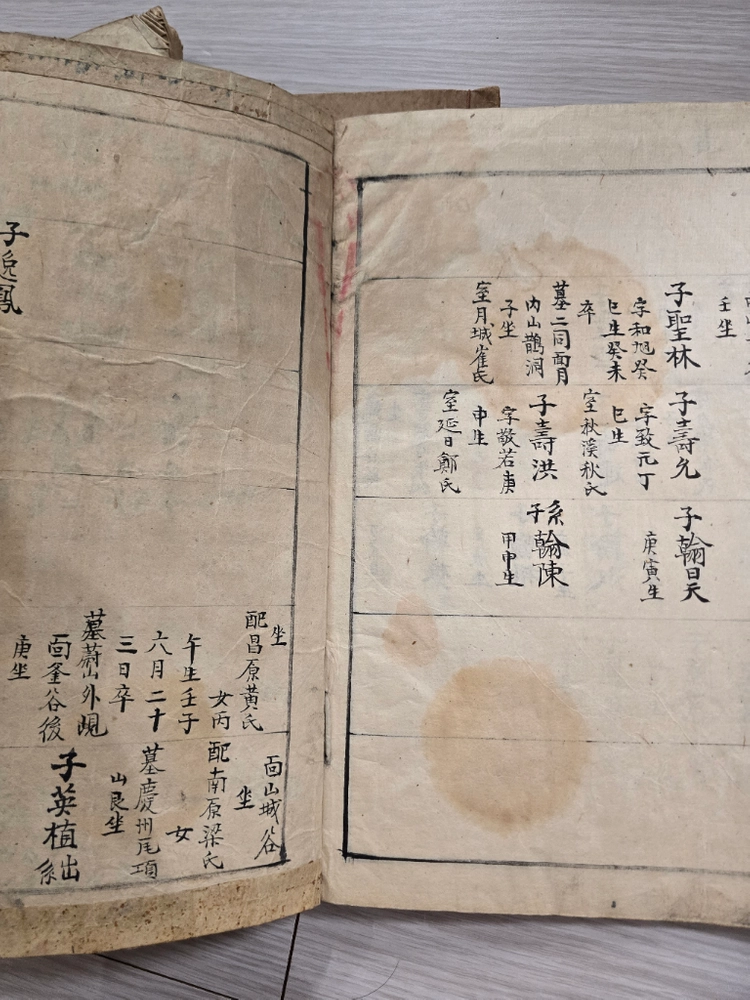 壬坐
子聖林
字和旭癸
巳生癸未
卒
墓二同面月
内山鵲洞
子坐
室月城崔氏
子壽允
字致元丁
巳生
室秋溪秋氏
子壽洪
字敬若庚
申生
室延日鄭氏
子翰昊
庚寅生
系子翰陳
甲申生
子逸鳳
坐
配昌原黃氏
女丙
午生壬子
六月二十
三日卒
墓蔚山外峴
面釜谷後
庚坐
面山城谷
坐
配南原梁氏
女
墓慶州尾項
山艮坐
子英植出
系